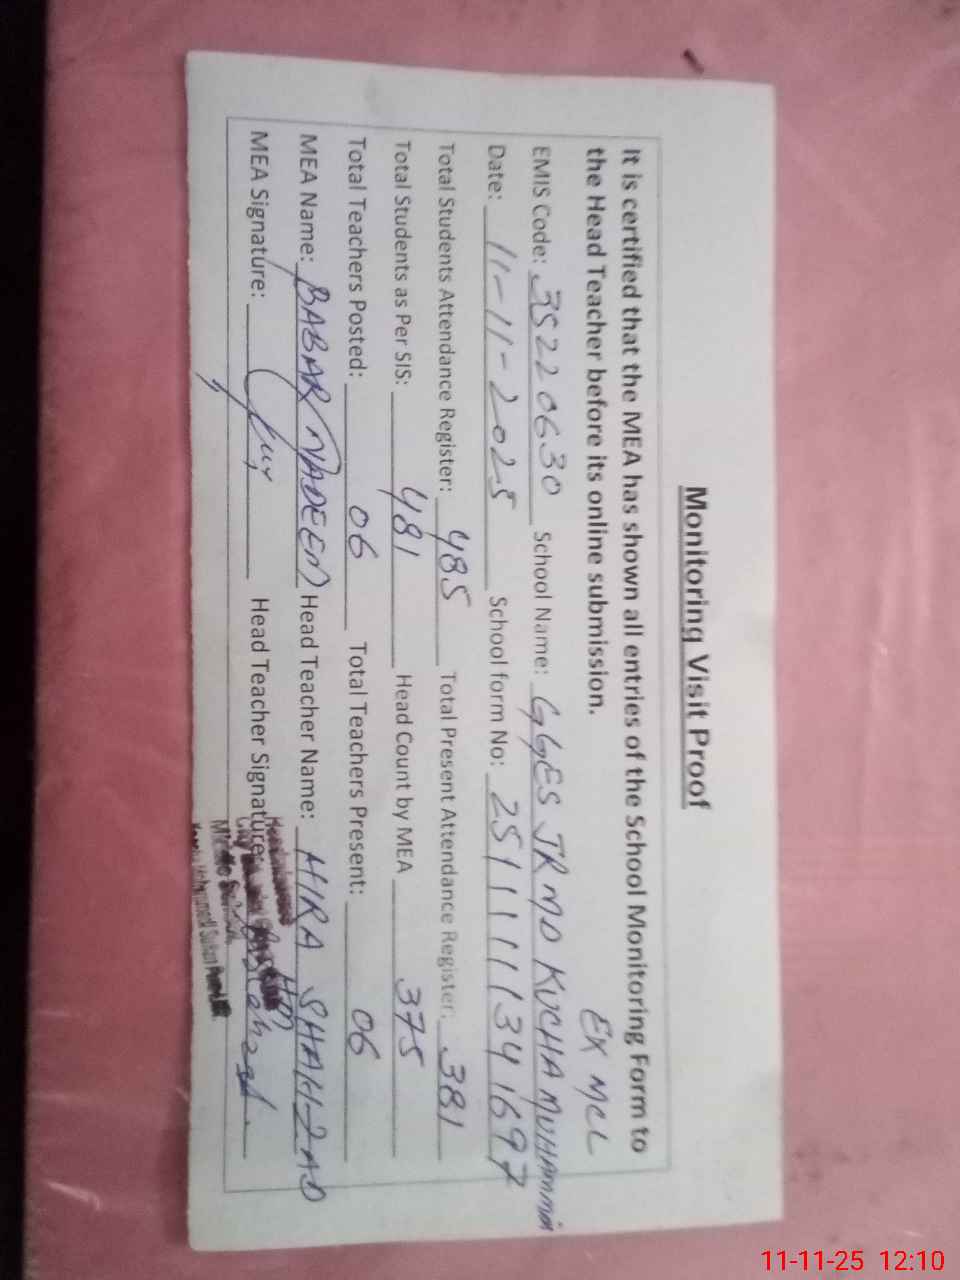 Monitoring Visit Proof
It is certified that the MEA has shown all entries of the School Monitoring Form to
the Head Teacher before its online submission. EX MCL
EMIS Code: 35220630 School Name: GGES JR MD KUCHA MUHAMMDI
Date: 11-11-2025 School form No: 2511111341697
Total Students Attendance Register: 485 Total Present Attendance Register: 381
Total Students as Per SIS: 481 Head Count by MEA 375
Total Teachers Posted: 06 Total Teachers Present: 06
MEA Name: BABAR NADEEM Head Teacher Name: HIRA SHAHZAD
MEA Signature: Head Teacher Signature:
11-11-25 12:10